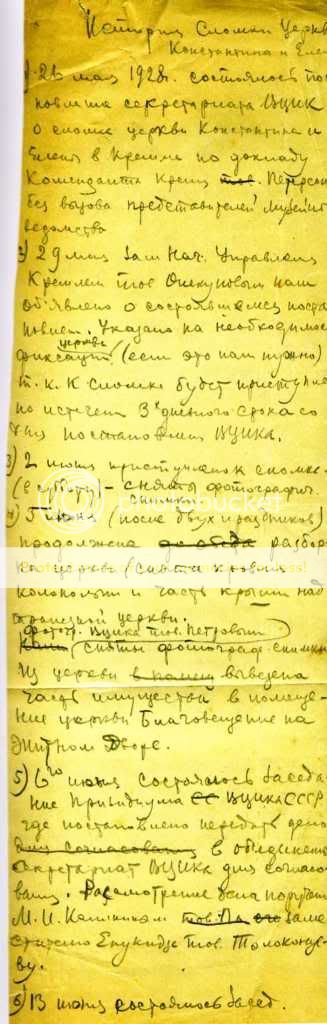 История сломки церкв
Константина и Еле
1) 26 мая 1928г. состоялось пос
новление секретариата ВЦИК
о сломке церкви Константина и
Елены в Кремле по докладу
Коменданта Кремля тов. Петерсон
без вызова представителей Музейн
ведомства
2) 29 мая Зам Нач. Управления
Кремлем тов Опекуновым нам
объявлено о состоявшемся поста
новлен. Указано на необходимос
церкви
фиксации (если это нам нужно)
т. к. к сломке будут приступле
по истечен 3х дневного срока со
дня постановления ВЦИКа.
3) 2 июня приступлено к сломке
(в сняты фотографич.
снимки
4) 5 июня (после двух праздников)
продолжена до обеда разбор
ка церкви (снята кровля
колокольни и часть крыши над
церкви.
фотогр. ВЦИКа тов. Петровым
сняты фотограф. снимки
Из церкви выведена
часть имущества в помеще-
ние церкви Благовещение на
Житном Дворе.
5) 6го июня состоялось заседа
ние Президиума ВЦИКа СССР
где постановлено передать дело
для согласования в объединен
Секретариат ВЦИКа для согласо
вания. Рассмотрение дела поручен
М. И. Калининым заме
стителю Енукидзе тов. Толоконце-
ву.
6) 13 июня состоялось засед.
photobucket